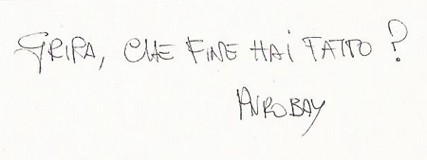 GRIPA, CHE FINE HAI FATTO?